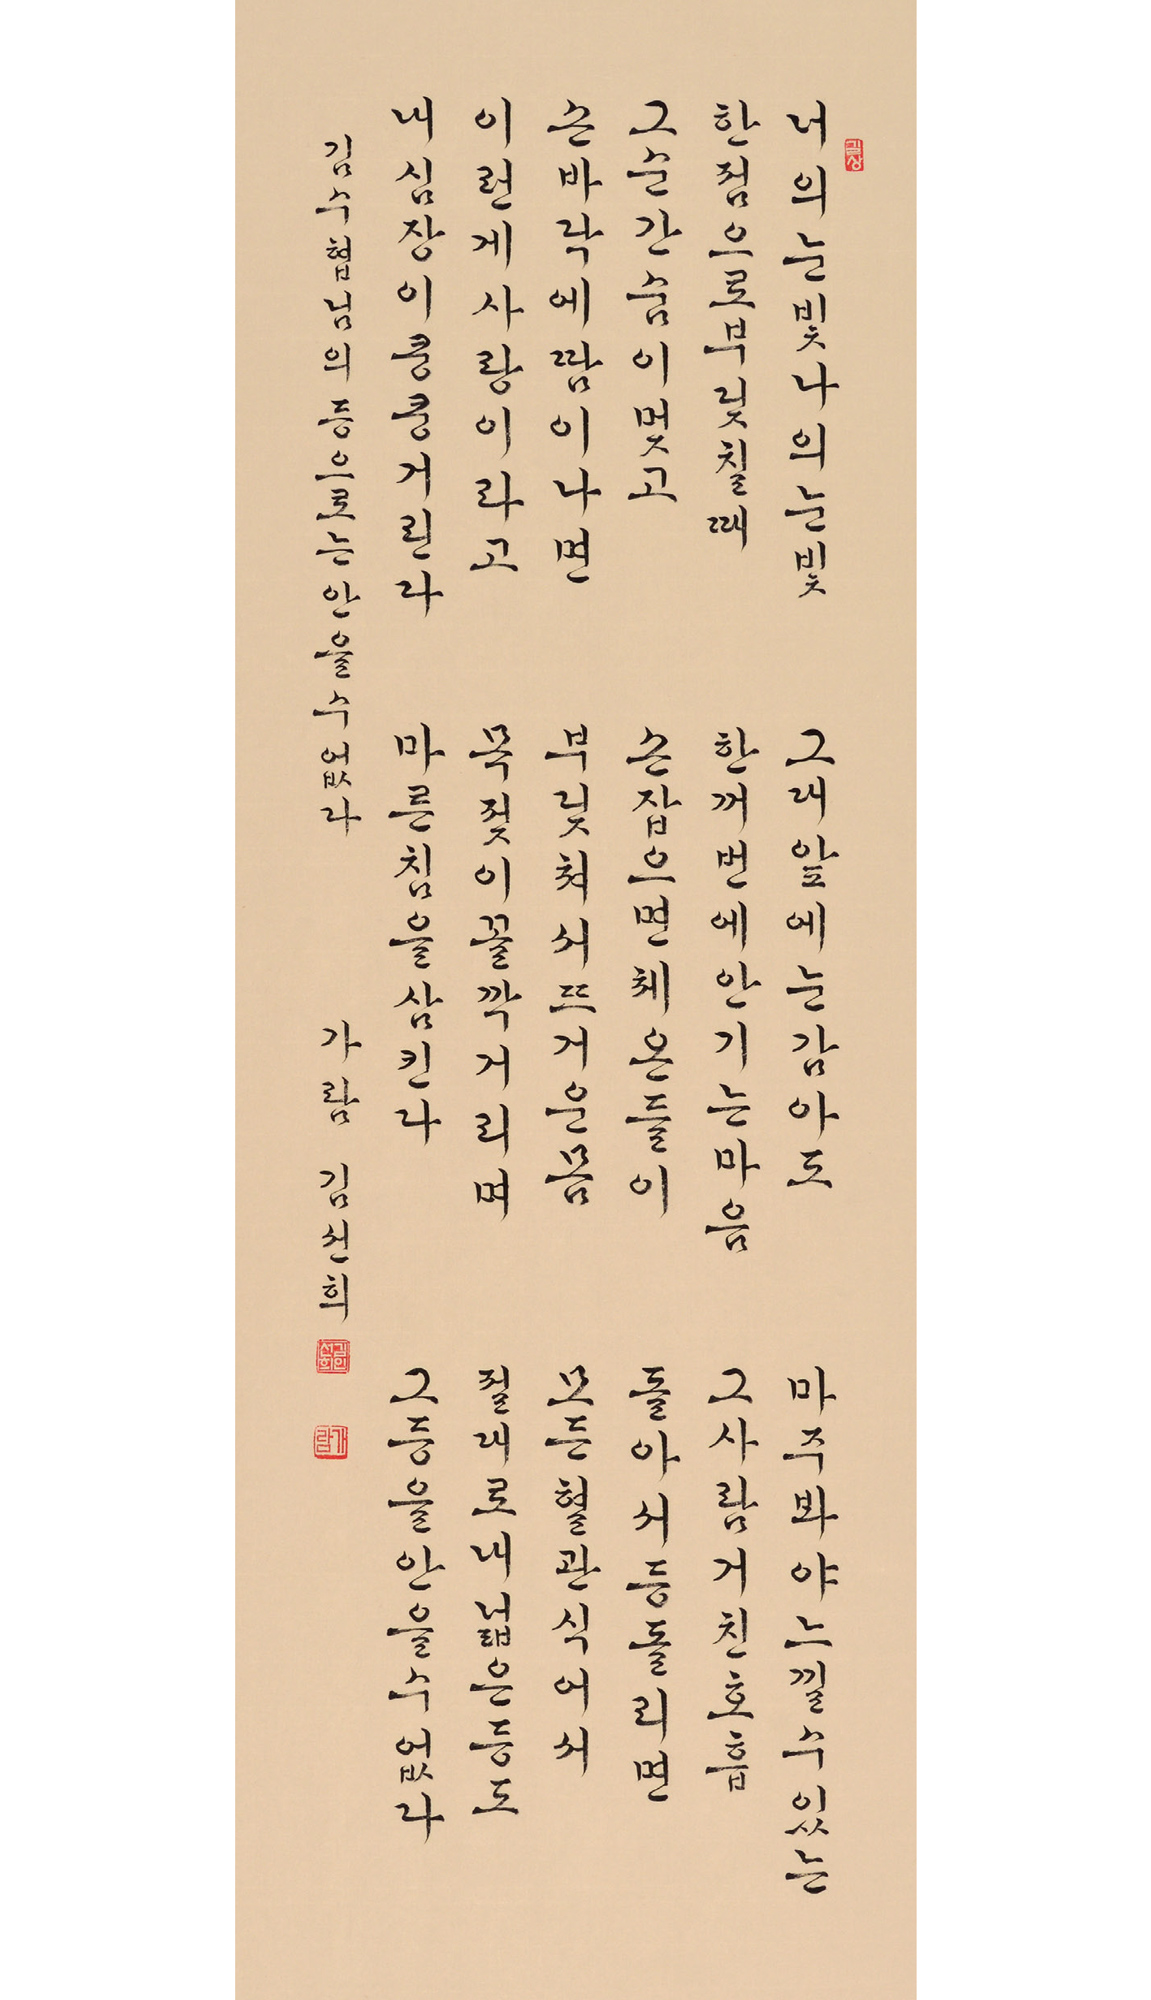 길상
너의눈빛나의눈빛
한점으로부딪칠때
그순간숨이멎고
손바닥에땀이나면
이런게사랑이라고
내심장이쿵쿵거린다
그대앞에눈감아도
한꺼번에안기는마음
손잡으면체온들이
부딪쳐서뜨거운몸
목젖이꼴깍거리며
마른침을삼킨다
마주봐야느낄수있는
그사람거친호흡
돌아서등돌리면
모든혈관식어서
절대로내넓은등도
그등을안을수없다
김수협님의등으로는안을수없다 가람 김선희
김선희인
가람